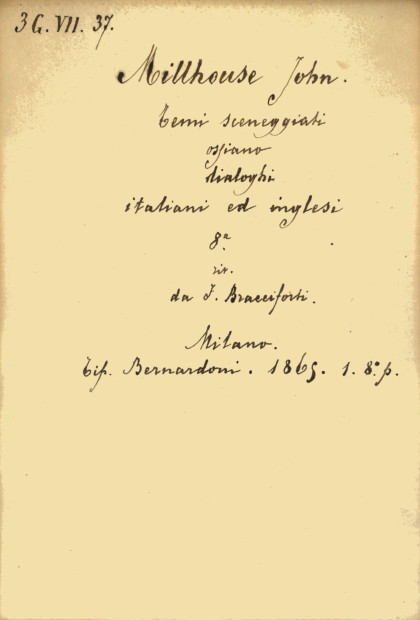 3 G. VII. 37.
Millhouse John.
Temi sceneggiati
ossiano
dialoghi
italiani ed inglesi
8.a
riv.
da F. Bracciforti.
Milano.
Tip. Bernardoni. 1865. 1. 8.° p.